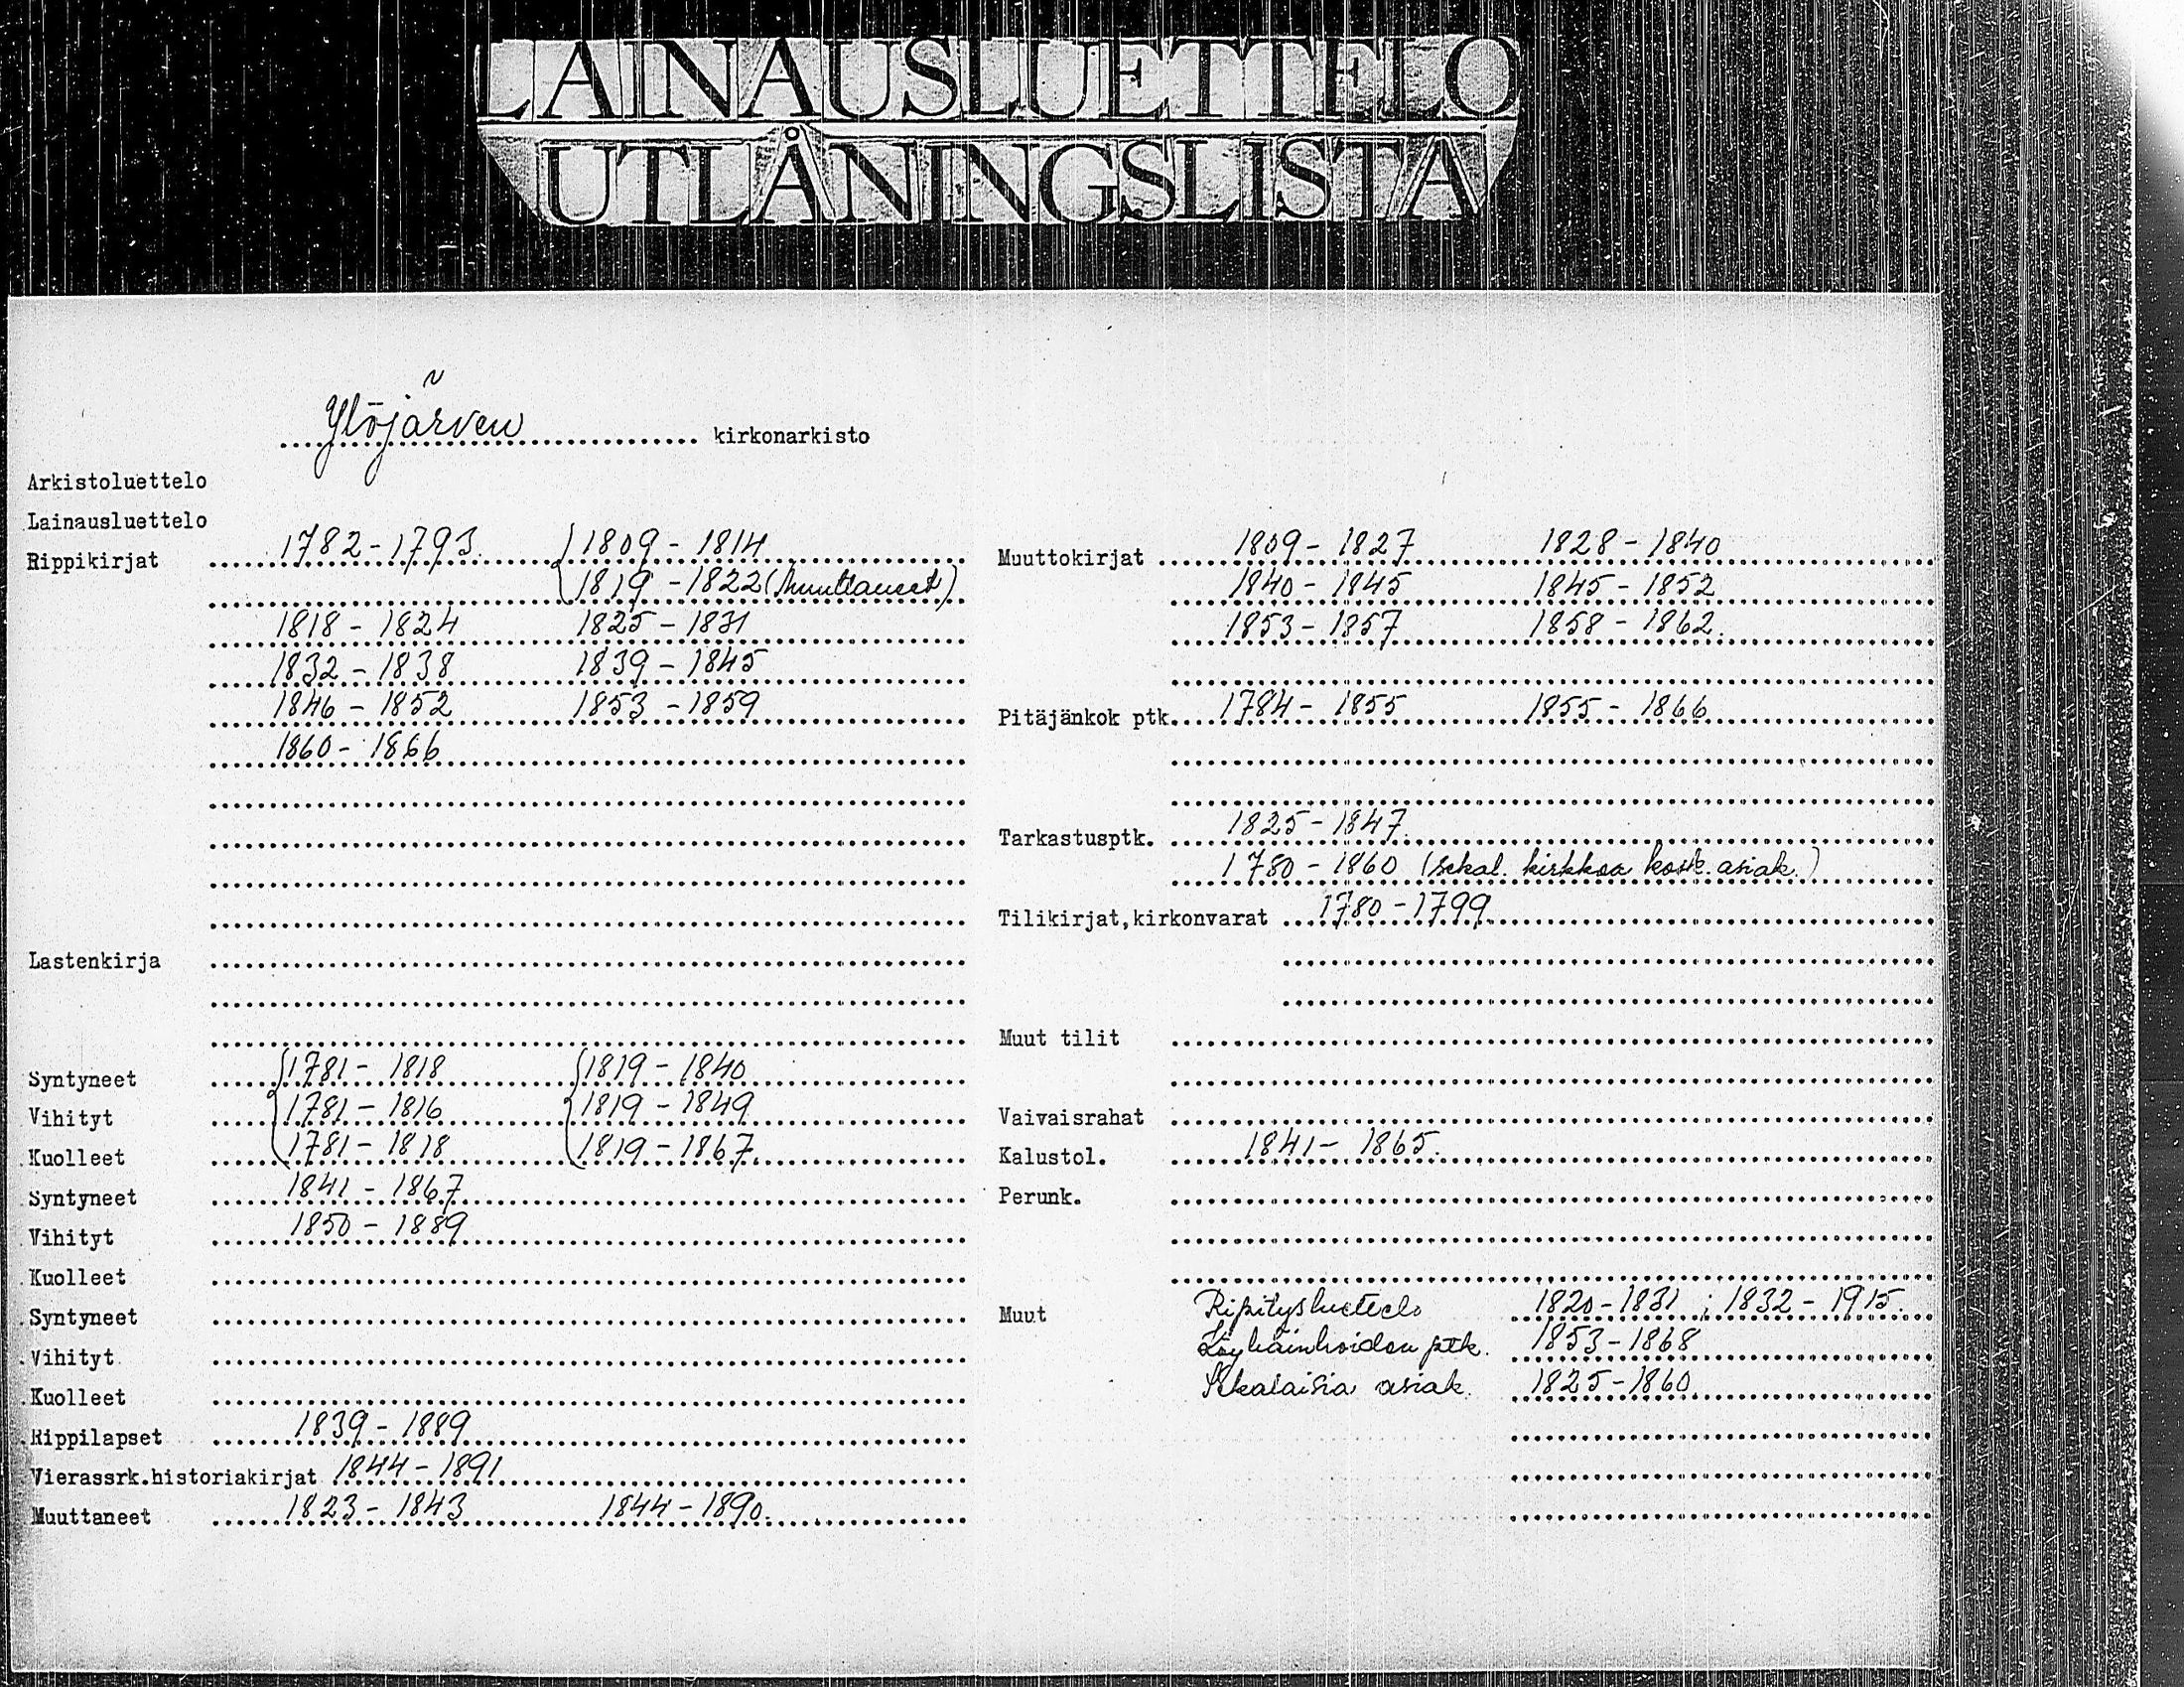 LAINAUSLUETTELO
UTLÅNINGSLISTA
Ylöjärven kirkonarkisto
Arkistoluettelo
Lainausluettelo
Rippikirjat 1782-1793 1809-1814
1819-1822 (Muuttaneet)
1818-1824 1825-1831
1832-1838 1839-1845
1846-1852 1853-1859
1860-1866
Lastenkirja
Syntyneet 1781-1818 1819-1840
Vihityt 1781-1816 1819-1849
Kuolleet 1781-1818 1819-1867.
Syntyneet 1841-1867
Vihityt 1850-1889
Kuolleet
Syntyneet
Vihityt
Kuolleet
Rippilapset 1839-1889
Vierassrk.historiakirjat 1844-1891
Muuttaneet 1823-1843 1844-1890.
Muuttokirjat 1809-1827 1828-1840
1840-1845 1845-1852
1853-1857 1858-1862.
Pitäjänkok ptk. 1784-1855 1855-1866
Tarkastusptk. 1825-1847.
1780-1860 (sekal. kirkkoa kosk. asiak.)
Tilikirjat,kirkonvarat 1780-1799
Muut tilit
Vaivaisrahat
Kalustol. 1841-1865.
Perunk.
Muut Ripitysluettelo 1820-1831 ; 1832-1915.
Köyhäinhoidon ptk. 1853-1868
Sekalaisia asiak. 1825-1860